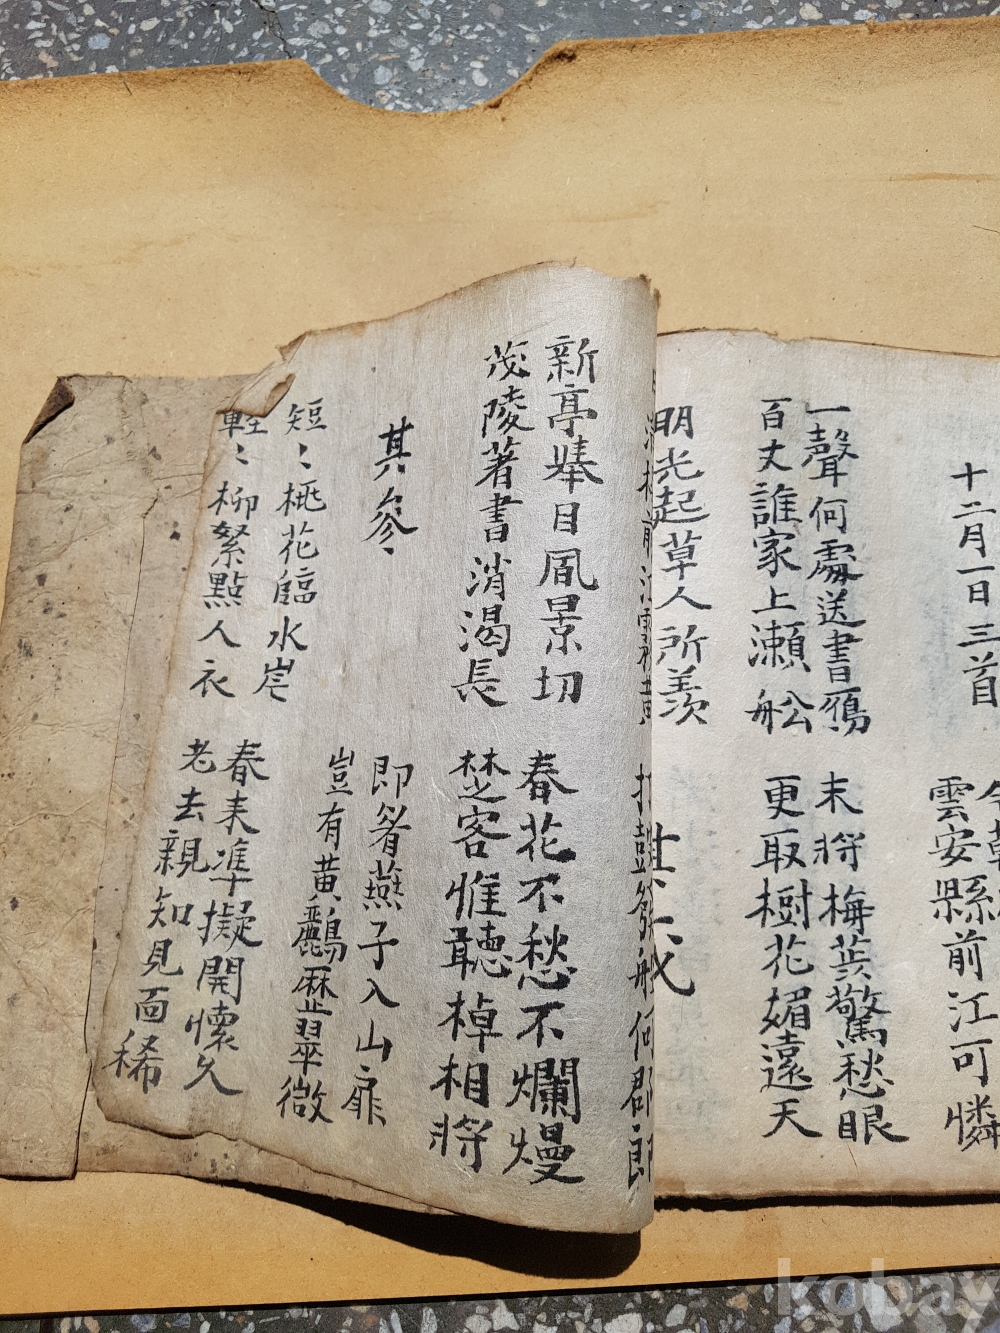 十二月一日三首
雲安縣前江可憐
一聲何處送書鴈
百丈誰家上瀨舩
末將梅蘂驚愁眼
更取樹花媚遠天
明光起草人所羨
打鼓發船何郡郎
新亭擧目風景切
茂陵著書消渴長
春花不愁不爛熳
楚客惟聽棹相將
其參
即看燕子入山扉
豈有黃鸝歷翠微
短〻桃花臨水岸
輕〻柳絮點人衣
春来準擬開懷久
老去親知見面稀
kobay